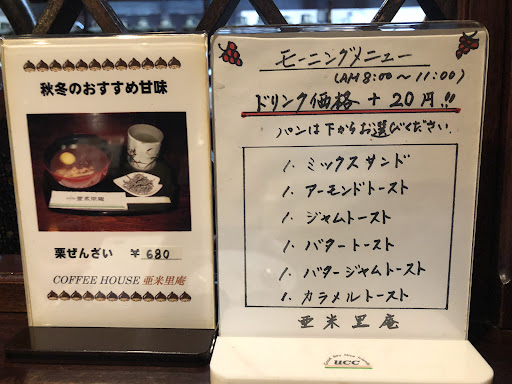 秋冬のおすすめ甘味
亜米里庵
栗ぜんざい ¥680
COFFEE HOUSE 亜米里庵
モーニングメニュー
(AM 8:00～11:00)
ドリンク価格 + 20円!!
パンは下からお選びください.
1. ミックスサンド
1. アーモンドトースト
1. ジャムトースト
1. バタートースト
1. バタージャムトースト
1. カラメルトースト
亜米里庵
ucc